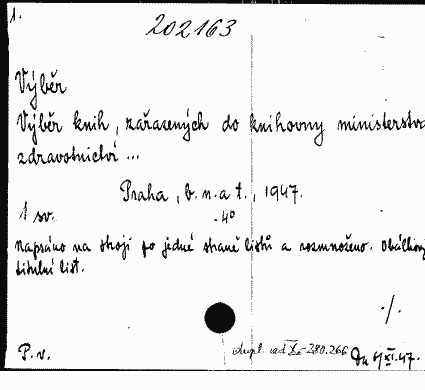 1.
202163
Výběr
Výběr knih, zařazených do knihovny ministerstva
zdravotnictví ...
Praha, b. n. a t., 1947.
1 sv. 4°
Napsáno na stroji po jedné straně listů a rozmnoženo. Obálkový
titulní list.
./.
P. v. XI-280.266 Da XI.47.